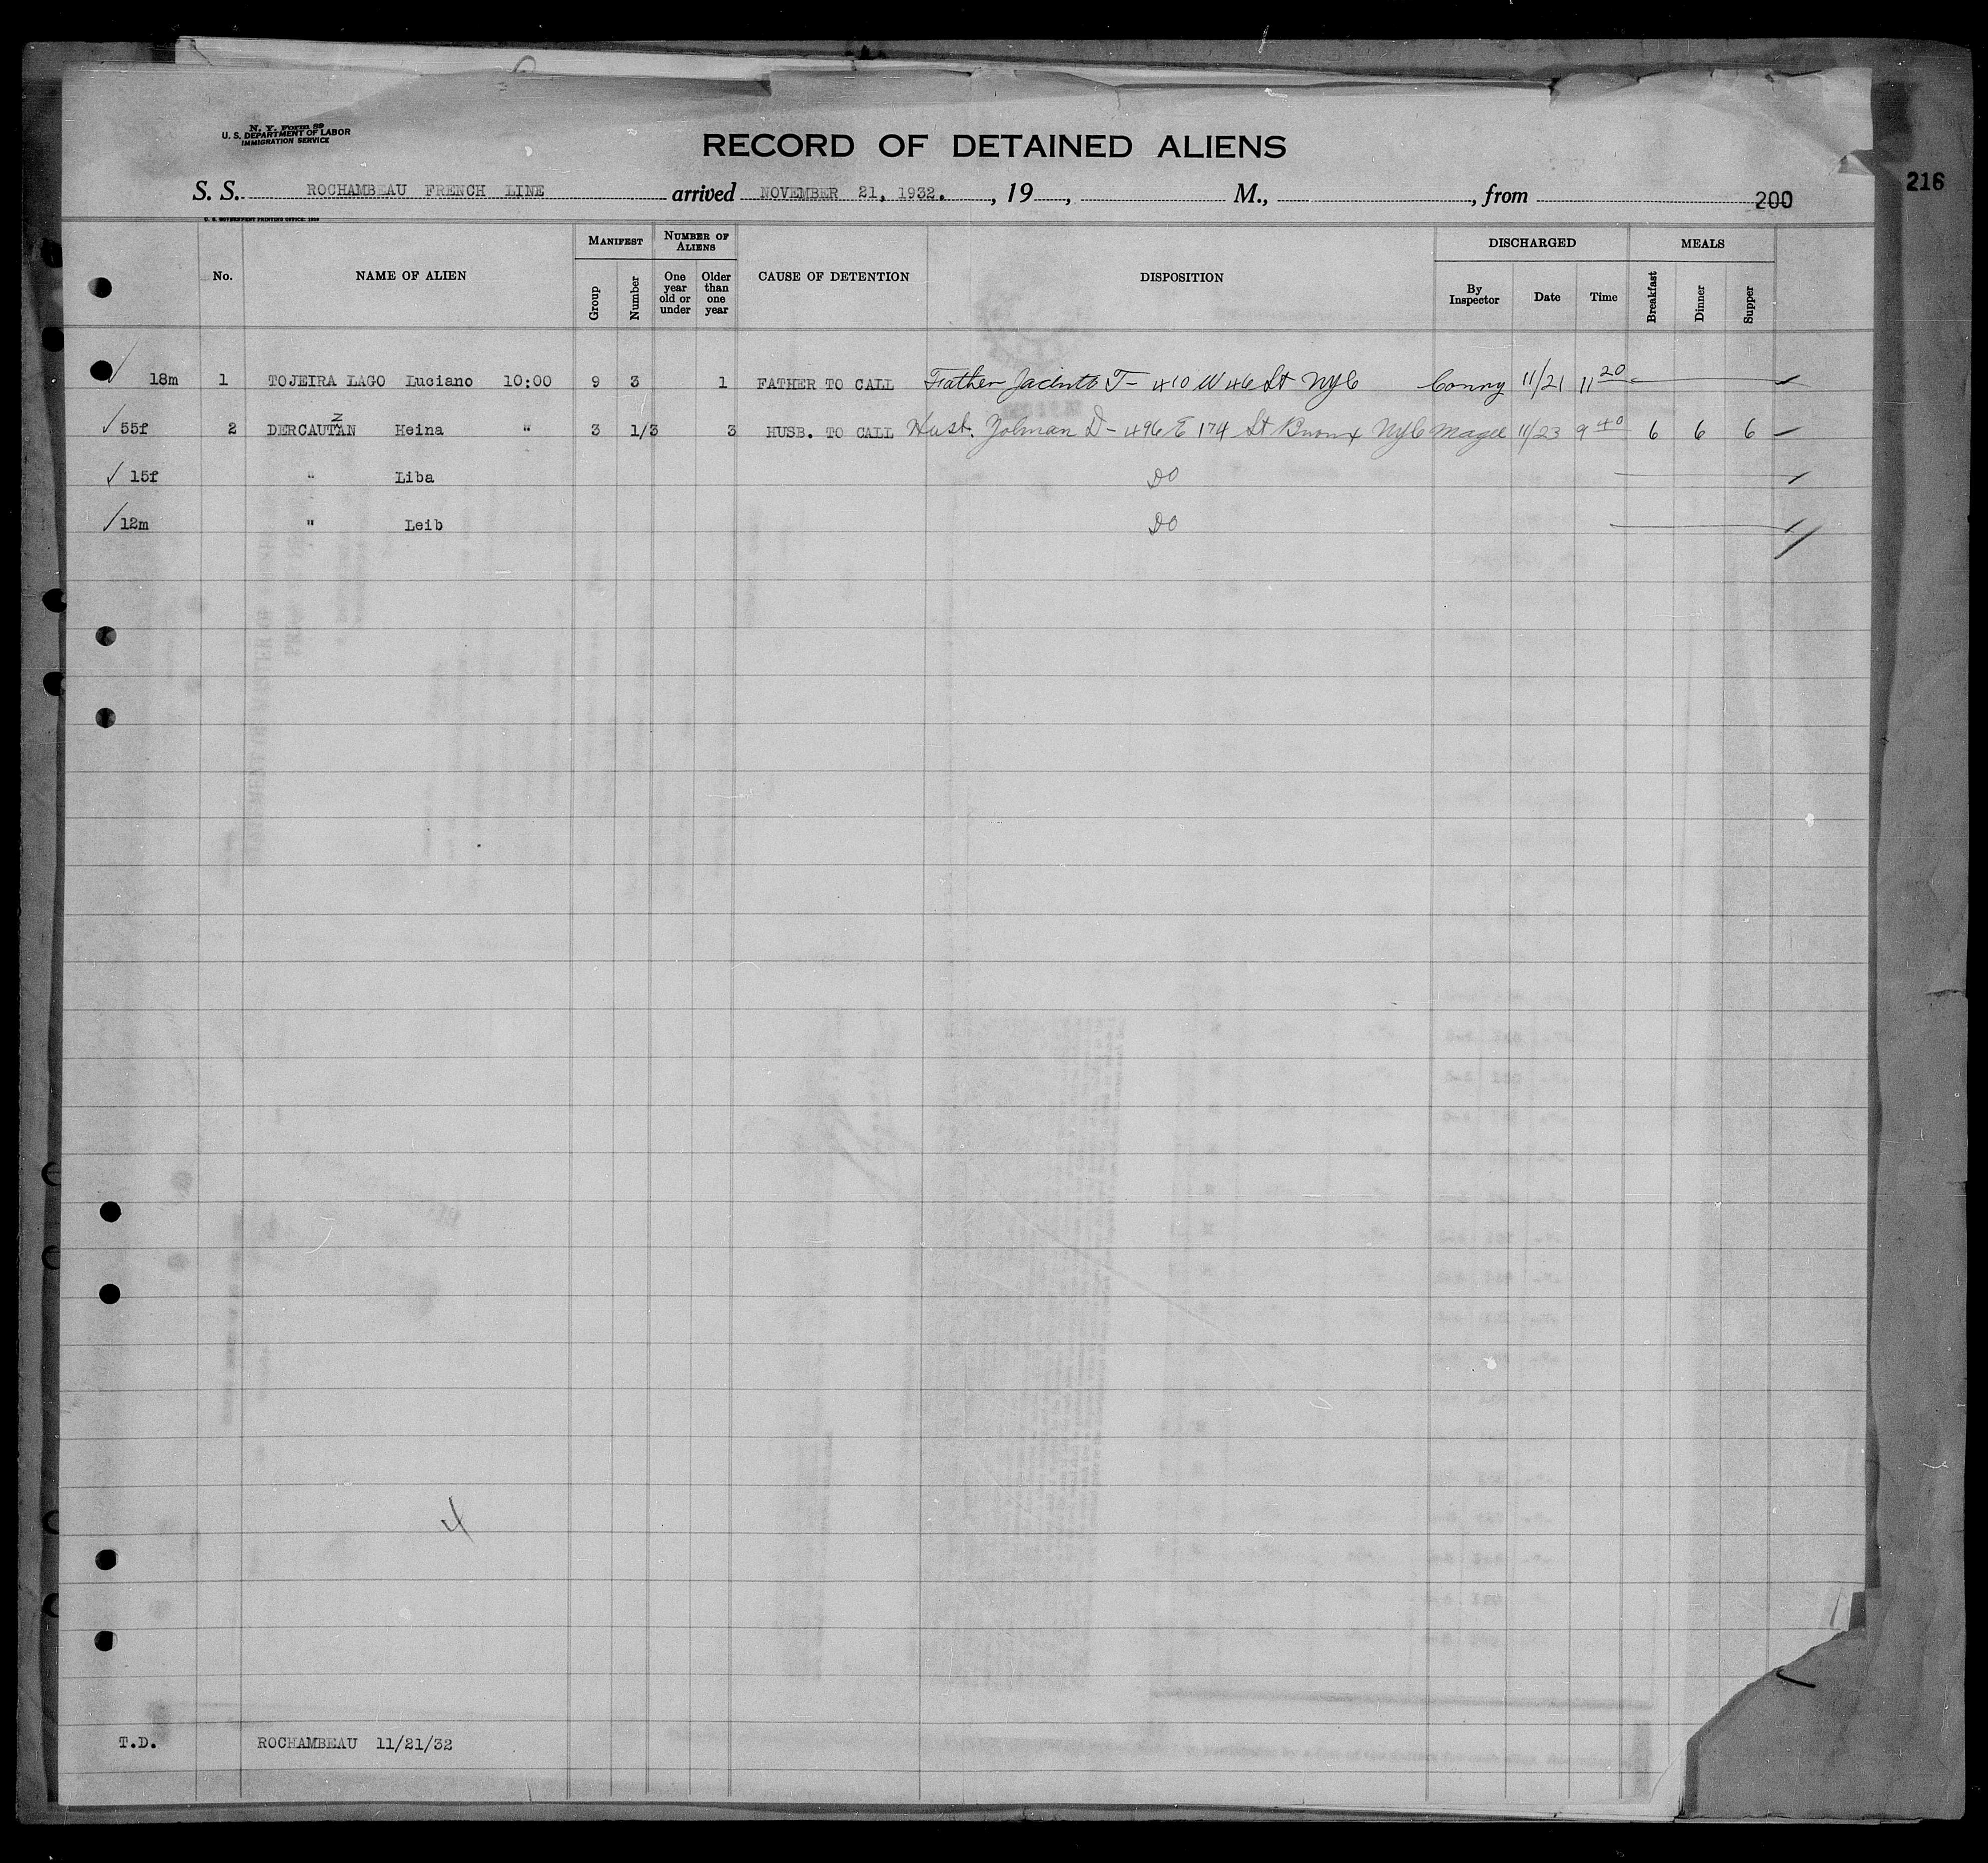 N. Y. Form 89
U. S. DEPARTMENT OF LABOR
IMMIGRATION SERVICE
RECORD OF DETAINED ALIENS
216
S. S. ROCHAMBEAU FRENCH LINE arrived NOVEMBER 21, 1932. , 19 , M., , from 200
U. S. GOVERNMENT PRINTING OFFICE: 1929
No. NAME OF ALIEN MANIFEST Group Number NUMBER OF ALIENS One year old or under Older than one year CAUSE OF DETENTION DISPOSITION DISCHARGED By Inspector Date Time MEALS Breakfast Dinner Supper
18m 1 TOJEIRA LAGO Luciano 10:00 9 3 1 FATHER TO CALL Father Jacinto T- 410 W 46 St NYC Conny 11/21 11 20
z
55f 2 DERCAUTAN Heina " 3 1/3 3 HUSB. TO CALL Husb. Zolman D- 496 E 174 St Bronx NYC Magee 11/23 9 40 6 6 6
15f " Liba DO
12m " Leib DO
4
T.D. ROCHAMBEAU 11/21/32